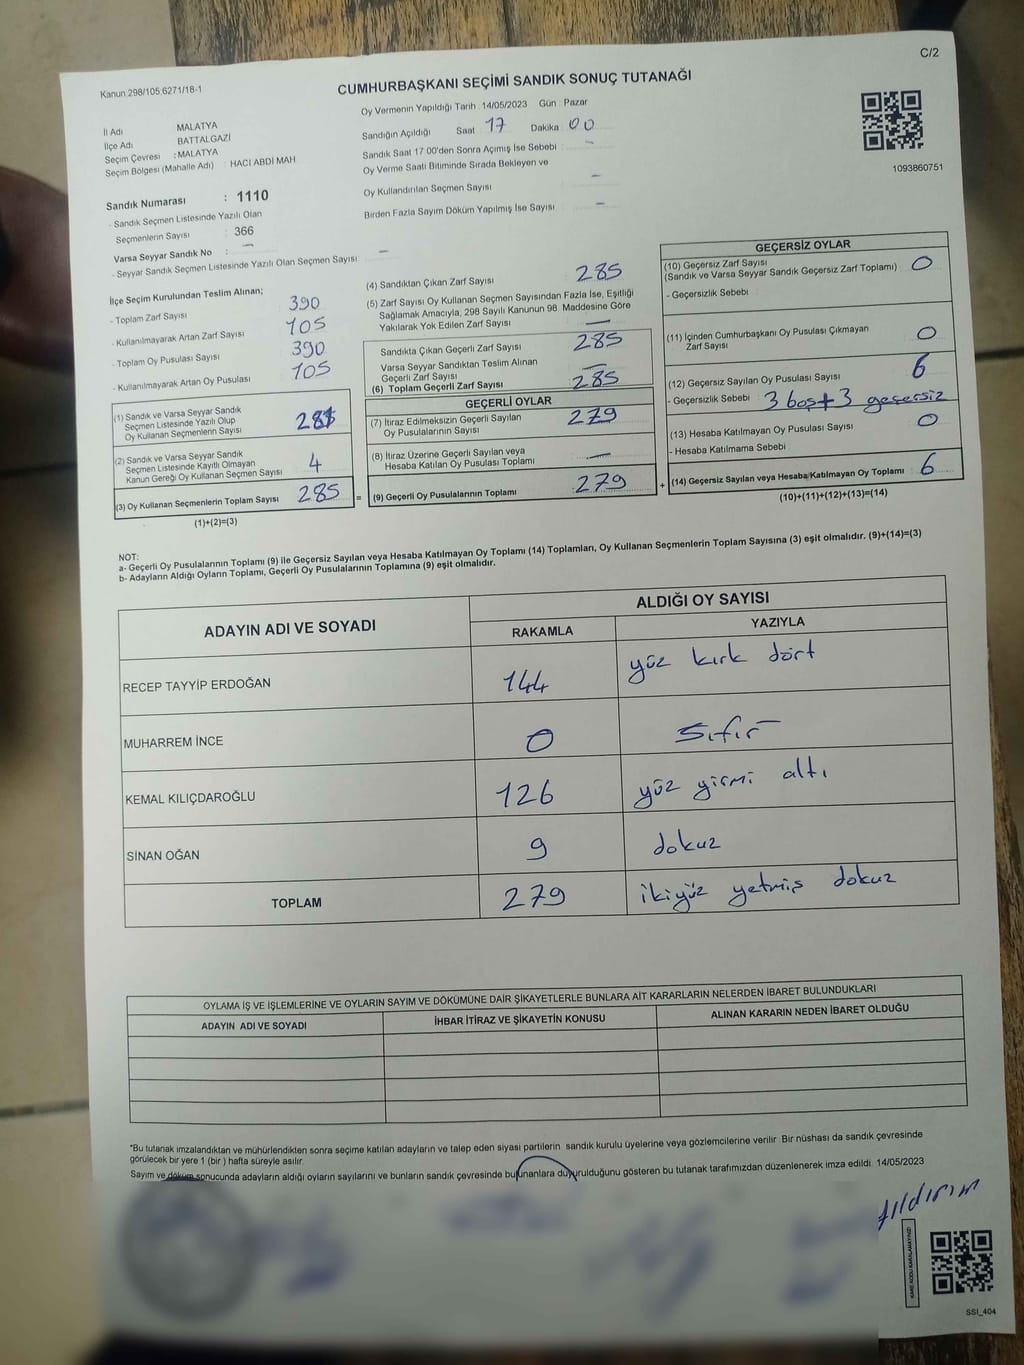 C/2
Kanun 298/105 6271/18-1
CUMHURBAŞKANI SEÇİMİ SANDIK SONUÇ TUTANAĞI
Oy Vermenin Yapıldığı Tarih : 14/05/2023 Gün : Pazar
İl Adı MALATYA
İlçe Adı BATTALGAZİ
Seçim Çevresi : MALATYA
Seçim Bölgesi (Mahalle Adı) : HACI ABDİ MAH
Sandık Numarası : 1110
- Sandık Seçmen Listesinde Yazılı Olan
Seçmenlerin Sayısı : 366
Varsa Seyyar Sandık No : —
- Seyyar Sandık Seçmen Listesinde Yazılı Olan Seçmen Sayısı: —
Sandığın Açıldığı Saat 17 Dakika 00
Sandık Saat 17 00'den Sonra Açımış İse Sebebi : —
Oy Verme Saati Bitiminde Sırada Bekleyen ve
Oy Kullandırılan Seçmen Sayısı —
Birden Fazla Sayım Döküm Yapılmış İse Sayısı —
1093860751
İlçe Seçim Kurulundan Teslim Alınan;
- Toplam Zarf Sayısı 390
- Kullanılmayarak Artan Zarf Sayısı 105
- Toplam Oy Pusulası Sayısı 390
- Kullanılmayarak Artan Oy Pusulası 105
(1) Sandık ve Varsa Seyyar Sandık
Seçmen Listesinde Yazılı Olup
Oy Kullanan Seçmenlerin Sayısı 281
(2) Sandık ve Varsa Seyyar Sandık
Seçmen Listesinde Kayıtlı Olmayan
Kanun Gereği Oy Kullanan Seçmen Sayısı 4
(3) Oy Kullanan Seçmenlerin Toplam Sayısı 285 =
(1)+(2)=(3)
(4) Sandıktan Çıkan Zarf Sayısı 285
(5) Zarf Sayısı Oy Kullanan Seçmen Sayısından Fazla İse, Eşitliği
Sağlamak Amacıyla, 298 Sayılı Kanunun 98. Maddesine Göre
Yakılarak Yok Edilen Zarf Sayısı —
Sandıkta Çıkan Geçerli Zarf Sayısı 285
Varsa Seyyar Sandıktan Teslim Alınan
Geçerli Zarf Sayısı —
(6) Toplam Geçerli Zarf Sayısı 285
GEÇERLİ OYLAR
(7) İtiraz Edilmeksizin Geçerli Sayılan
Oy Pusulalarının Sayısı 279
(8) İtiraz Üzerine Geçerli Sayılan veya
Hesaba Katılan Oy Pusulası Toplamı —
(9) Geçerli Oy Pusulalarının Toplamı 279 +
GEÇERSİZ OYLAR
(10) Geçersiz Zarf Sayısı 0
(Sandık ve Varsa Seyyar Sandık Geçersiz Zarf Toplamı)
- Geçersizlik Sebebi
(11) İçinden Cumhurbaşkanı Oy Pusulası Çıkmayan
Zarf Sayısı 0
(12) Geçersiz Sayılan Oy Pusulası Sayısı 6
- Geçersizlik Sebebi 3 boş + 3 geçersiz
(13) Hesaba Katılmayan Oy Pusulası Sayısı 0
- Hesaba Katılmama Sebebi
(14) Geçersiz Sayılan veya Hesaba Katılmayan Oy Toplamı 6
(10)+(11)+(12)+(13)=(14)
NOT:
a- Geçerli Oy Pusulalarının Toplamı (9) ile Geçersiz Sayılan veya Hesaba Katılmayan Oy Toplamı (14) Toplamları, Oy Kullanan Seçmenlerin Toplam Sayısına (3) eşit olmalıdır. (9)+(14)=(3)
b- Adayların Aldığı Oyların Toplamı, Geçerli Oy Pusulalarının Toplamına (9) eşit olmalıdır.
ADAYIN ADI VE SOYADI ALDIĞI OY SAYISI
RAKAMLA YAZIYLA
RECEP TAYYİP ERDOĞAN 144 yüz kırk dört
MUHARREM İNCE 0 Sıfır
KEMAL KILIÇDAROĞLU 126 yüz yirmi altı
SİNAN OĞAN 9 dokuz
TOPLAM 279 ikiyüz yetmiş dokuz
OYLAMA İŞ VE İŞLEMLERİNE VE OYLARIN SAYIM VE DÖKÜMÜNE DAİR ŞİKAYETLERLE BUNLARA AİT KARARLARIN NELERDEN İBARET BULUNDUKLARI
ADAYIN ADI VE SOYADI İHBAR İTİRAZ VE ŞİKAYETİN KONUSU ALINAN KARARIN NEDEN İBARET OLDUĞU
*Bu tutanak imzalandıktan ve mühürlendikten sonra seçime katılan adayların ve talep eden siyasi partilerin sandık kurulu üyelerine veya gözlemcilerine verilir Bir nüshası da sandık çevresinde
görülecek bir yere 1 (bir ) hafta süreyle asılır.
Sayım ve döküm sonucunda adayların aldığı oyların sayılarını ve bunların sandık çevresinde bulunanlara duyurulduğunu gösteren bu tutanak tarafımızdan düzenlenerek imza edildi 14/05/2023
Yıldırım
KARE KODU KARALAMAYINIZ!
SSI_404